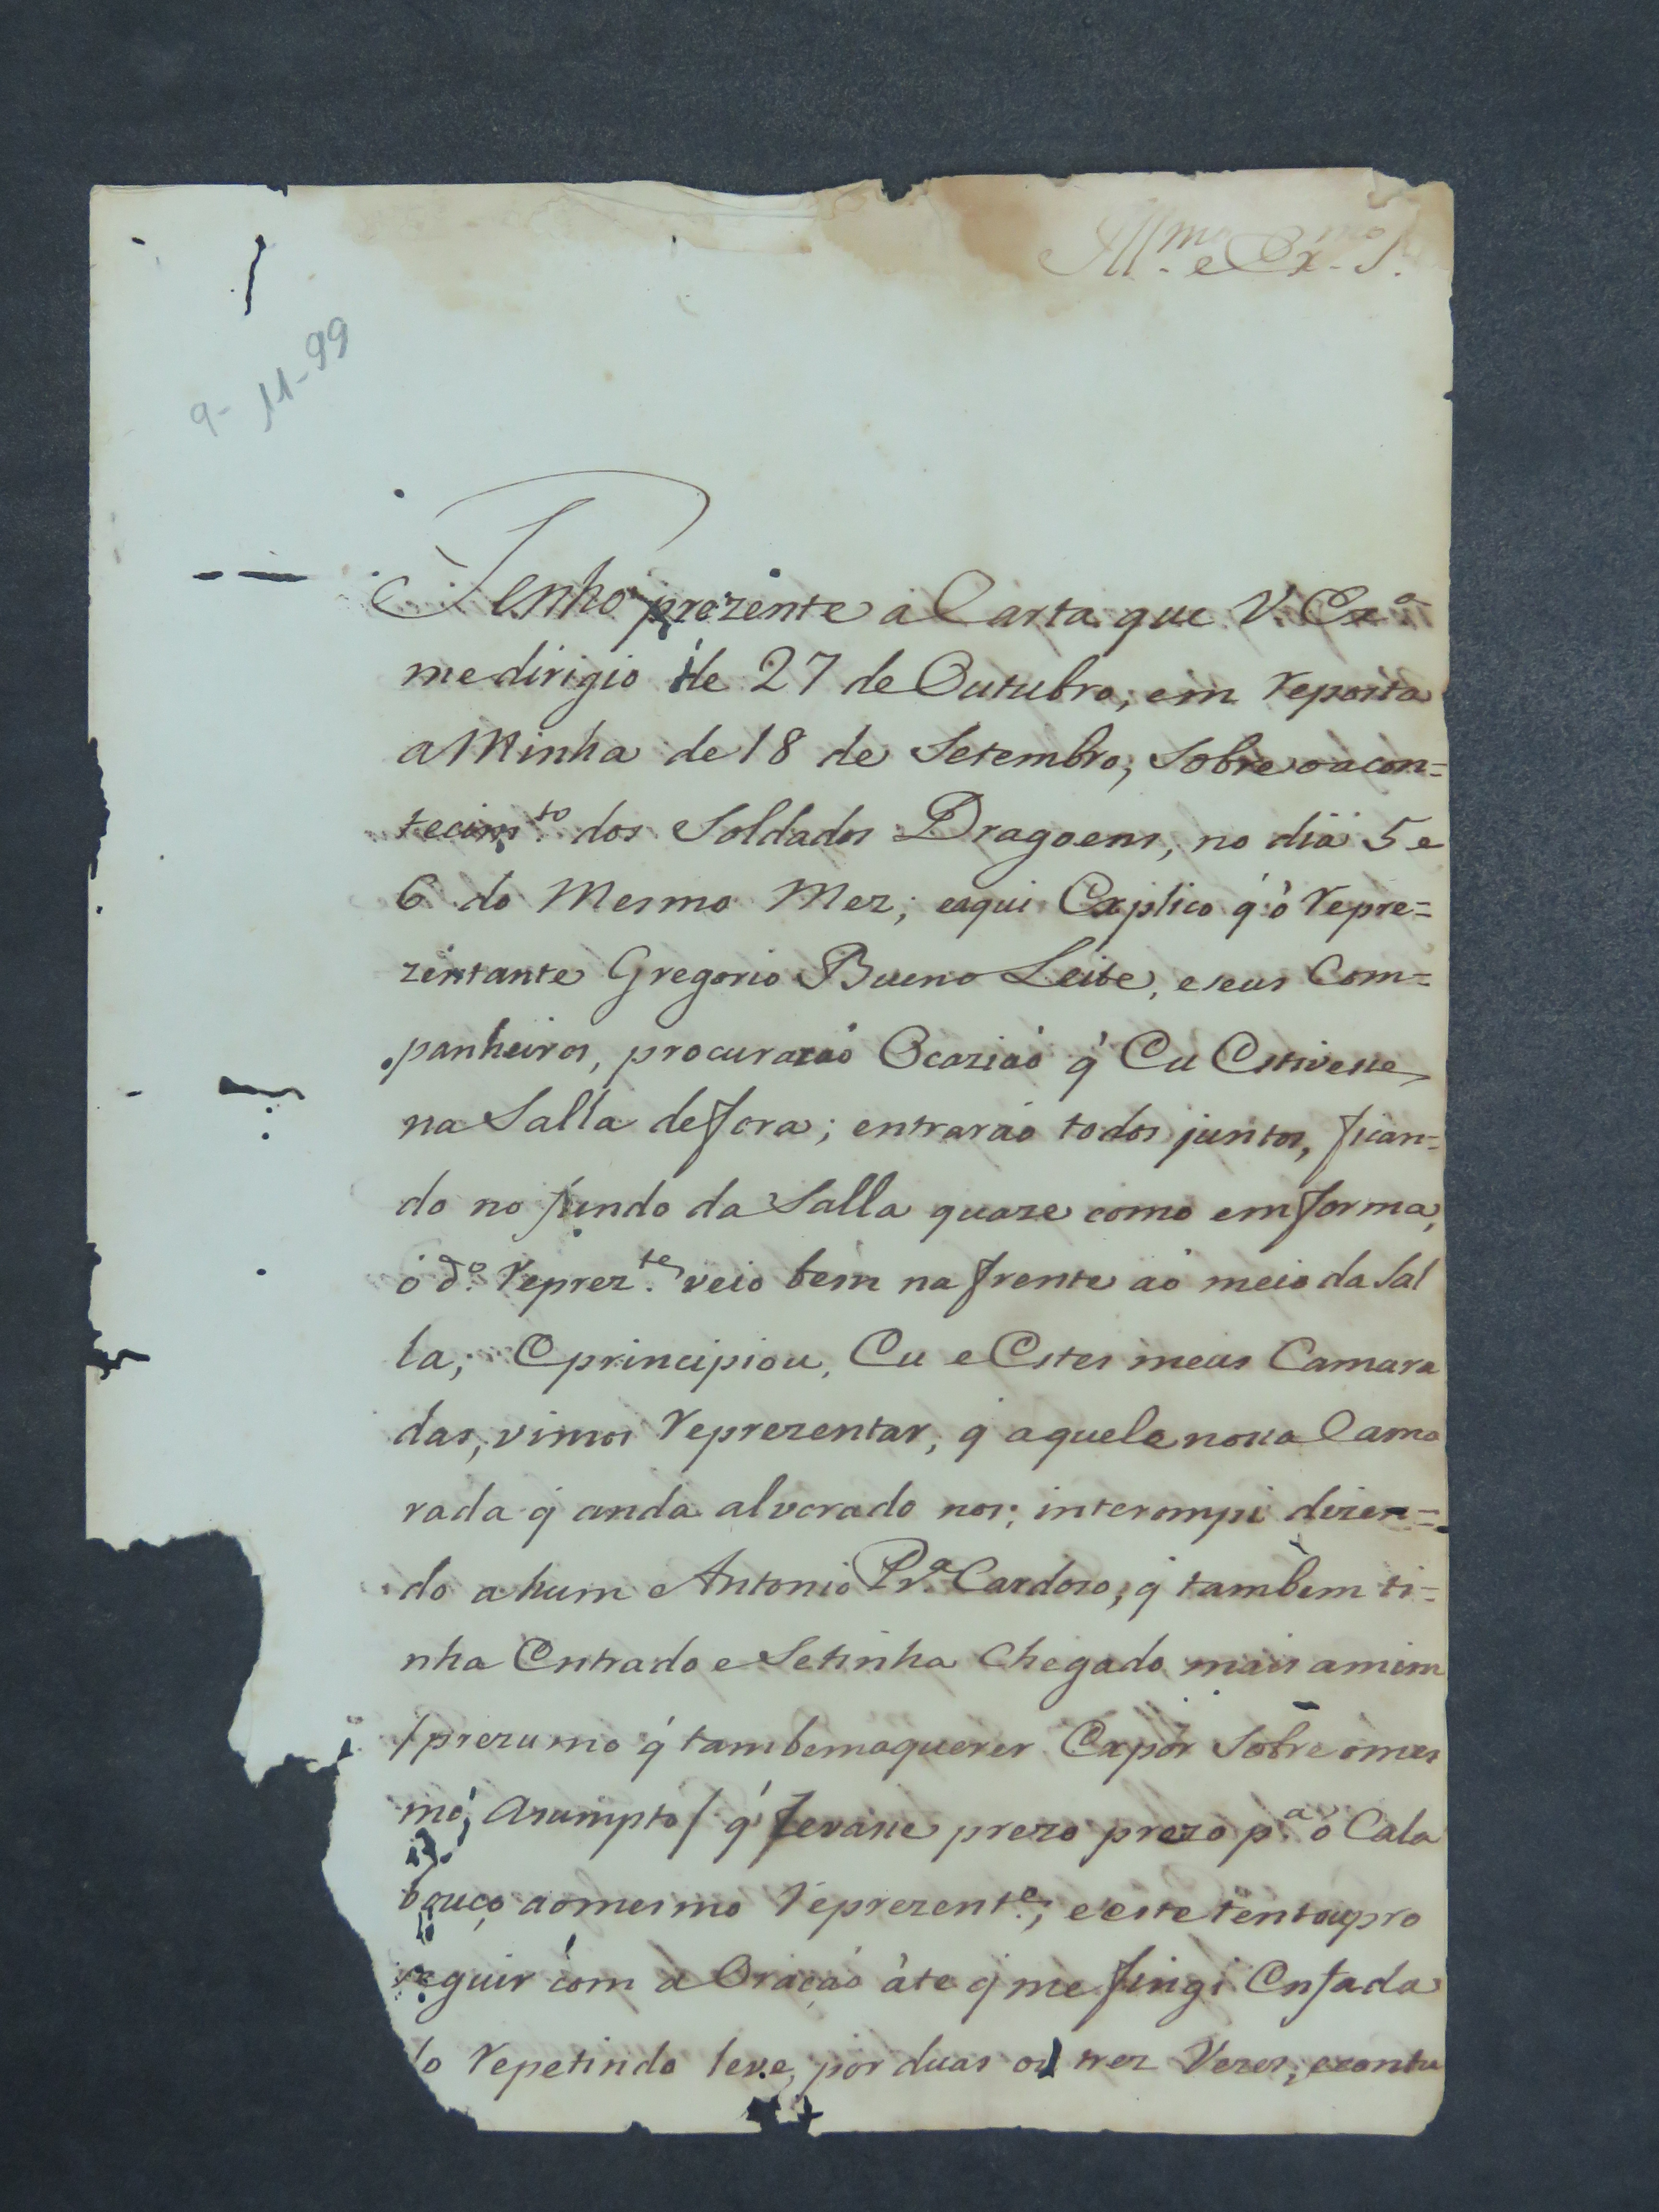 Ill.mo e Ex.mo S.
9-11-99
Tenho prezente a Carta que V. Ex.a
me dirigio de 27 de Outubro, em reposta
a Minha de 18 de Setembro, Sobre o acon=
tecim.to dos Soldados Dragoens, no dia 5 e
6 do Mesmo Mez; eaqui Explico q' ò repre=
zentante Gregorio Bueno Leite, e seus Com=
panheiros, procuraraó Ocaziaó q' Eu Estivesse
na Salla defora; entraraó todos juntos, fican=
do no fundo da Salla quaze como em forma,
ó d.o reprez.te veio bem na frente aó meio da Sal
la; E principiou, Eu e Estes meus Camara
das, vimos reprezentar, q' aquele nosso Cama
rada q' anda alvorado nos; interompi dizen=
do a hum Antonio Pr.a Cardozo, q' tambem ti=
nha Entrado e Setinha Chegado mais amim
/prezumo q' tambem aquerer Expór Sobre omes
mó, Asumpto/ q' levasse prezo prezo p.a ó Cala
bouço aomesmo reprezent.e; e este tentou pro
seguir com a Oraçaó àte q' me fingi Enfada
do repetindo leve, por duas ou trez Vezes, econtu